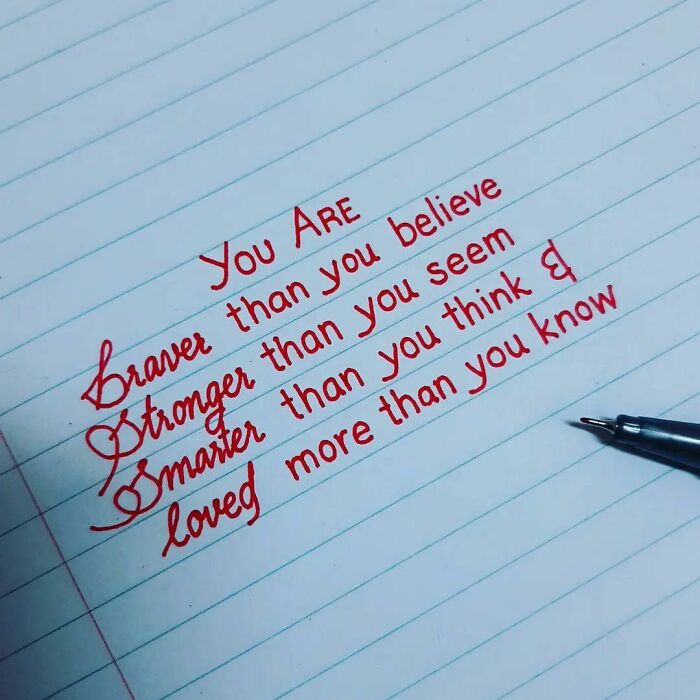 You ARE
braver than you believe
Stronger than you seem
Smarter than you think &
loved more than you know